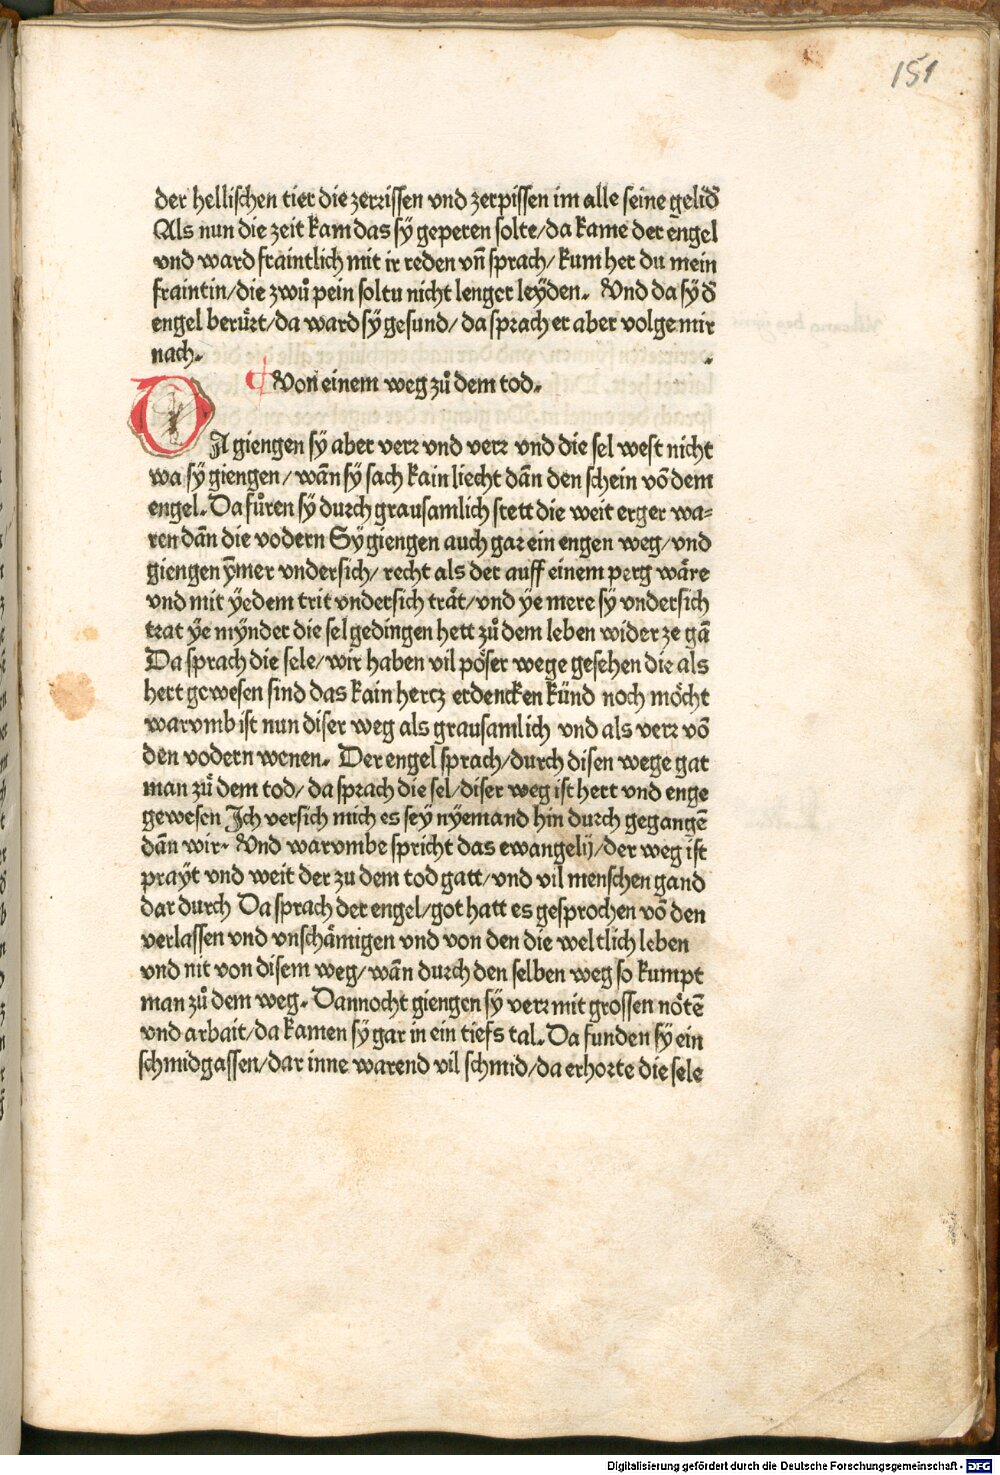 151
der hellischen tier die zerrissen vnd zerpissen im alle seine gelid᷑
Als nun die zeit kam das sÿ geperen solte/da kame der engel
vnd ward fraintlich mit ir reden vn̄ sprach/ kum her du mein
fraintin/die zwuͦ pein soltu nicht lenger leÿden. Vnd da sÿ d᷑
engel beruͤrt/da ward sÿ gesund/ da sprach er aber volge mir
nach.
Von einem weg zuͦ dem tod.
DA giengen sÿ aber verr vnd verr vnd die sel west nicht
wa sÿ giengen/ wān sÿ sach kain liecht dān den schein vō dem
engel. Da fuͦren sÿ durch grausamlich stett die weit erger wa⸗
ren dān die vodern Sÿ giengen auch gar ein engen weg/vnd
giengen ÿmer vndersich/ recht als der auff einem perg waͤre
vnd mit ÿedem trit vndersich traͤt/vnd ÿe mere sÿ vndersich
trat ÿe mÿnder die sel gedingen hett zuͦ dem leben wider ze gā
Da sprach die sele/wir haben vil poͤser wege gesehen die als
hert gewesen sind das kain hertz erdencken kuͤnd noch moͤcht
warvmb ist nun diser weg als grausamlich vnd als verr vō
den vodern wenen. Der engel sprach/durch disen wege gat
man zuͦ dem tod/ da sprach die sel/diser weg ist hert vnd enge
gewesen Ich versich mich es seÿ nÿemand hin durch gegangē
dān wir. Vnd warvmbe spricht das ewangelij/der weg ist
praÿt vnd weit der zu dem tod gatt/vnd vil menschen gand
dar durch Da sprach der engel/got hatt es gesprochen vō den
verlassen vnd vnschaͤmigen vnd von den die weltlich leben
vnd nit von disem weg/wān durch den selben weg so kumpt
man zuͦ dem weg. Dannocht giengen sÿ verr mit grossen noͤtē
vnd arbait/da kamen sÿ gar in ein tiefs tal. Da funden sÿ ein
schmidgassen/dar inne warend vil schmid/da erhorte die sele
Digitalisierung gefördert durch die Deutsche Forschungsgemeinschaft - DFG